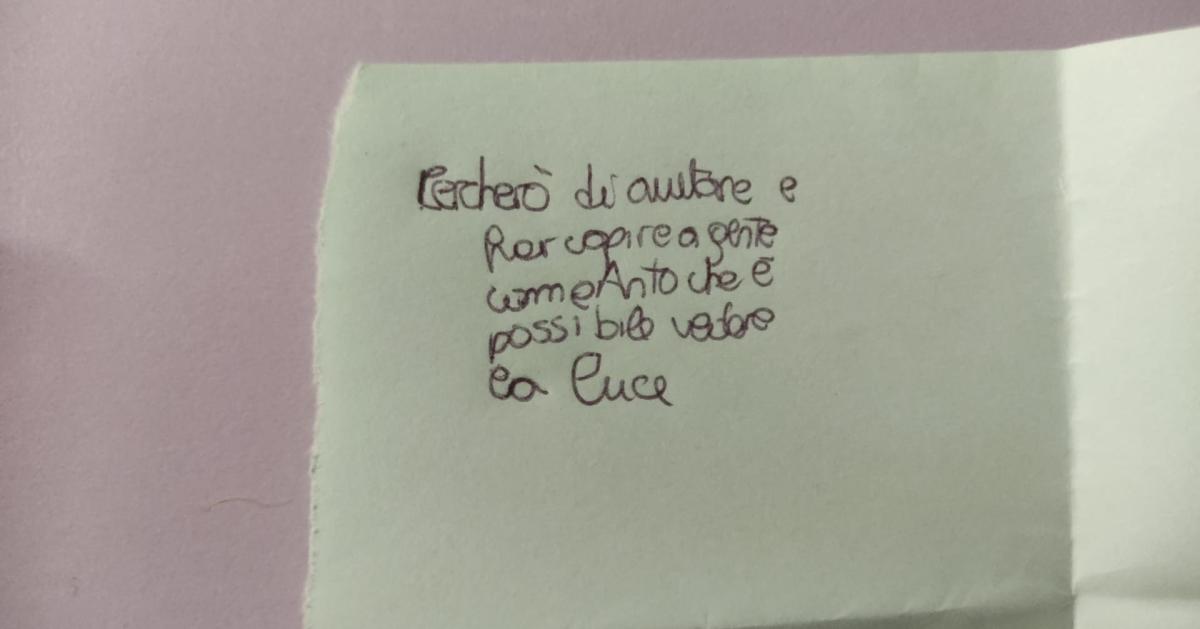 Cercherò di aiutare e
Far capire a gente
come Anto che è
possibile vedere
la luce